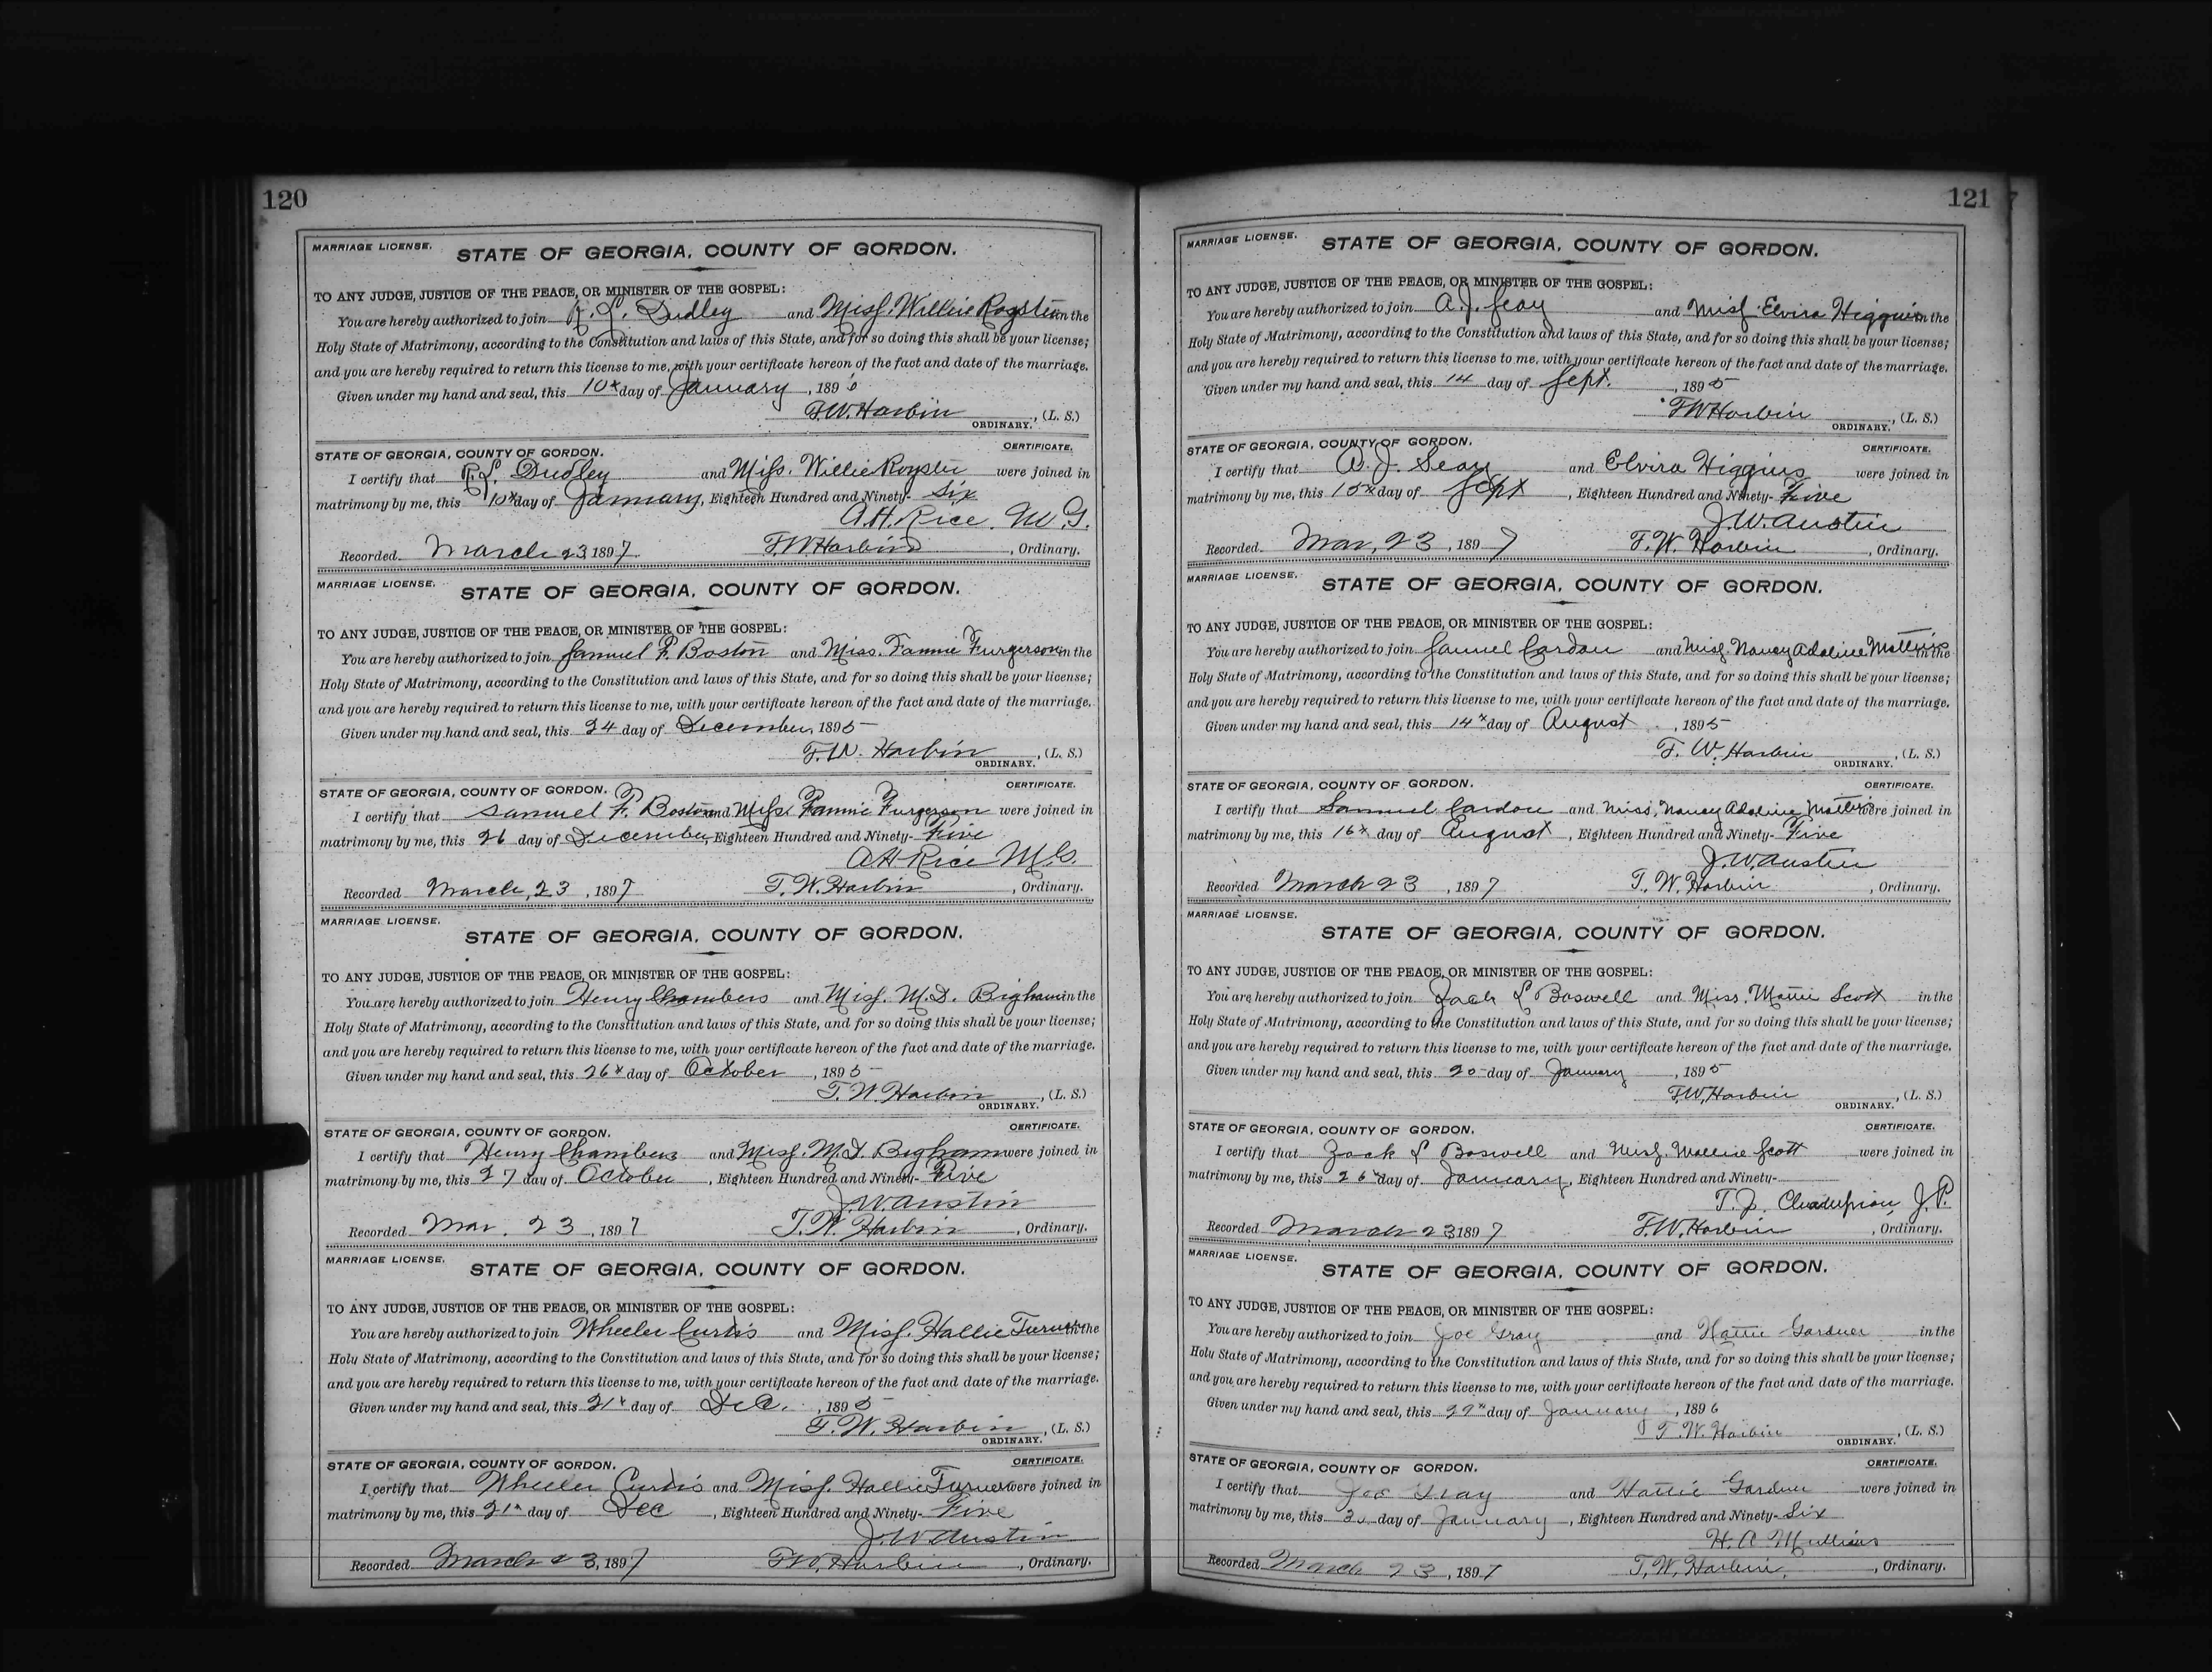 120
MARRIAGE LICENSE. STATE OF GEORGIA, COUNTY OF GORDON.
TO ANY JUDGE, JUSTICE OF THE PEACE, OR MINISTER OF THE GOSPEL:
You are hereby authorized to join R. L. Dudley and Miss. Willie Royster in the
Holy State of Matrimony, according to the Constitution and laws of this State, and for so doing this shall be your license;
and you are hereby required to return this license to me, with your certificate hereon of the fact and date of the marriage.
Given under my hand and seal, this 10x day of January, 1896
F.W. Harbin, (L. S.)
ORDINARY.
STATE OF GEORGIA, COUNTY OF GORDON. CERTIFICATE.
I certify that R. L. Dudley and Miss. Willie Royster were joined in
matrimony by me, this 10x day of January, Eighteen Hundred and Ninety- Six
A.H. Rice. M G.
Recorded March 23 1897 F.W. Harbin, Ordinary.
MARRIAGE LICENSE. STATE OF GEORGIA, COUNTY OF GORDON.
TO ANY JUDGE, JUSTICE OF THE PEACE, OR MINISTER OF THE GOSPEL:
You are hereby authorized to join Samuel F. Boston and Miss. Fannie Furgerson in the
Holy State of Matrimony, according to the Constitution and laws of this State, and for so doing this shall be your license;
and you are hereby required to return this license to me, with your certificate hereon of the fact and date of the marriage.
Given under my hand and seal, this 24 day of December, 1895
F.W. Harbin, (L. S.)
ORDINARY.
STATE OF GEORGIA, COUNTY OF GORDON. CERTIFICATE.
I certify that Samuel F. Boston and Miss Fannie Furgerson were joined in
matrimony by me, this 26 day of December, Eighteen Hundred and Ninety- Five
A H Rice M.G.
Recorded March, 23, 1897 F. W. Harbin, Ordinary.
MARRIAGE LICENSE.
STATE OF GEORGIA, COUNTY OF GORDON.
TO ANY JUDGE, JUSTICE OF THE PEACE, OR MINISTER OF THE GOSPEL:
You are hereby authorized to join Henry Chambers and Miss. M.D. Bigham in the
Holy State of Matrimony, according to the Constitution and laws of this State, and for so doing this shall be your license;
and you are hereby required to return this license to me, with your certificate hereon of the fact and date of the marriage.
Given under my hand and seal, this 26x day of October, 1895
F. W. Harbin, (L. S.)
ORDINARY.
STATE OF GEORGIA, COUNTY OF GORDON. CERTIFICATE.
I certify that Henry Chambers and Miss. M.D. Bigham were joined in
matrimony by me, this 27 day of October, Eighteen Hundred and Ninety- Five
J.W. Austin
Recorded Mar. 23, 1897 F. W. Harbin, Ordinary.
MARRIAGE LICENSE. STATE OF GEORGIA, COUNTY OF GORDON.
TO ANY JUDGE, JUSTICE OF THE PEACE, OR MINISTER OF THE GOSPEL:
You are hereby authorized to join Wheeler Curtis and Miss. Hallie Turner in the
Holy State of Matrimony, according to the Constitution and laws of this State, and for so doing this shall be your license;
and you are hereby required to return this license to me, with your certificate hereon of the fact and date of the marriage.
Given under my hand and seal, this 21x day of Dec., 1895
F. W. Harbin, (L. S.)
ORDINARY.
STATE OF GEORGIA, COUNTY OF GORDON. CERTIFICATE.
I certify that Wheeler Curtis and Miss. Hallie Turner were joined in
matrimony by me, this 21x day of Dec, Eighteen Hundred and Ninety- Five
J.W Austin
Recorded March 23, 1897 F.W. Harbin, Ordinary.
121
MARRIAGE LICENSE. STATE OF GEORGIA, COUNTY OF GORDON.
TO ANY JUDGE, JUSTICE OF THE PEACE, OR MINISTER OF THE GOSPEL:
You are hereby authorized to join A. J. Seay and Miss. Elvira Higgins in the
Holy State of Matrimony, according to the Constitution and laws of this State, and for so doing this shall be your license;
and you are hereby required to return this license to me, with your certificate hereon of the fact and date of the marriage.
Given under my hand and seal, this 14 day of Sept., 1895
F W Harbin, (L. S.)
ORDINARY.
STATE OF GEORGIA, COUNTY OF GORDON. CERTIFICATE.
I certify that A. J. Seay and Elvira Higgins were joined in
matrimony by me, this 15x day of Sept, Eighteen Hundred and Ninety- Five
J.W. Austin
Recorded Mar, 23, 1897 F. W. Harbin, Ordinary.
MARRIAGE LICENSE. STATE OF GEORGIA, COUNTY OF GORDON.
TO ANY JUDGE, JUSTICE OF THE PEACE, OR MINISTER OF THE GOSPEL:
You are hereby authorized to join Samuel Cardon and Miss. Nancy Adaline in the
Holy State of Matrimony, according to the Constitution and laws of this State, and for so doing this shall be your license;
and you are hereby required to return this license to me, with your certificate hereon of the fact and date of the marriage.
Given under my hand and seal, this 14x day of August, 1895
F. W. Harbin, (L. S.)
ORDINARY.
STATE OF GEORGIA, COUNTY OF GORDON. CERTIFICATE.
I certify that Samuel Cardon and Miss, Nancy Adaline were joined in
matrimony by me, this 16x day of August, Eighteen Hundred and Ninety- Five
J.W. Austin
Recorded March 23, 1897 F. W. Harbin, Ordinary.
MARRIAGE LICENSE.
STATE OF GEORGIA, COUNTY OF GORDON.
TO ANY JUDGE, JUSTICE OF THE PEACE, OR MINISTER OF THE GOSPEL:
You are hereby authorized to join Jack L Boswell and Miss. Scott in the
Holy State of Matrimony, according to the Constitution and laws of this State, and for so doing this shall be your license;
and you are hereby required to return this license to me, with your certificate hereon of the fact and date of the marriage.
Given under my hand and seal, this 20 day of January, 1895
F.W, Harbin, (L. S.)
ORDINARY.
STATE OF GEORGIA, COUNTY OF GORDON. CERTIFICATE.
I certify that Jack L Boswell and Miss. Mollie Scott were joined in
matrimony by me, this 26x day of January, Eighteen Hundred and Ninety-
T. J. Champion, J.P.
Recorded March 23 1897 F.W. Harbin, Ordinary.
MARRIAGE LICENSE. STATE OF GEORGIA, COUNTY OF GORDON.
TO ANY JUDGE, JUSTICE OF THE PEACE, OR MINISTER OF THE GOSPEL:
You are hereby authorized to join Joe Gray and Hattie Gardner in the
Holy State of Matrimony, according to the Constitution and laws of this State, and for so doing this shall be your license;
and you are hereby required to return this license to me, with your certificate hereon of the fact and date of the marriage.
Given under my hand and seal, this 29x day of January, 1896
F. W. Harbin, (L. S.)
ORDINARY.
STATE OF GEORGIA, COUNTY OF GORDON. CERTIFICATE.
I certify that Joe Gray and Hattie Gardner were joined in
matrimony by me, this 30 day of January, Eighteen Hundred and Ninety- Six
H. A Mullins
Recorded March 23, 1897 F. W. Harbin, Ordinary.